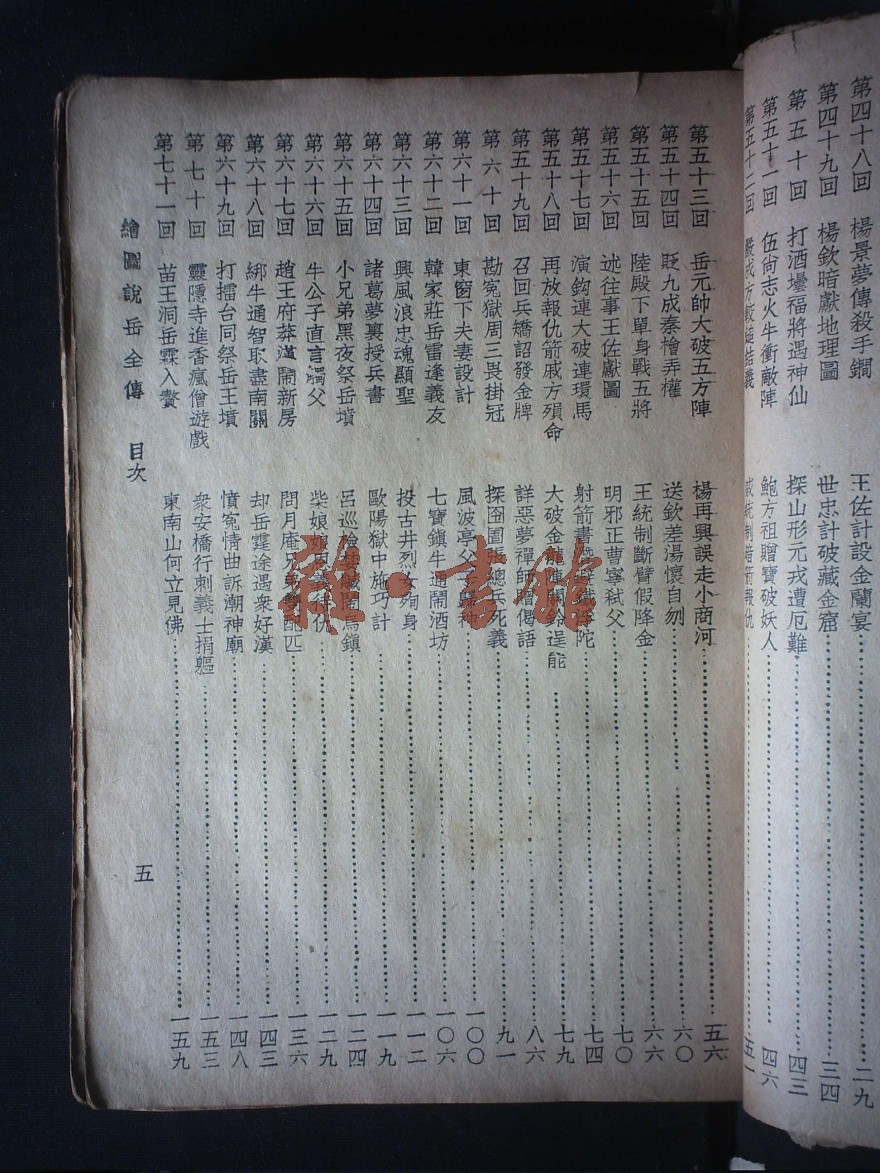 第四十八回 楊景夢傳殺手鐧 王佐計設金蘭宴 二九
第四十九回 楊欽暗獻地理圖 世忠計破藏金窟 三四
第五十回 打酒壜福將遇神仙 探山形元戎遭厄難 四三
第五十一回 伍尚志火牛衝敵陣 鮑方祖贈寶破妖人 四六
第五十二回 嚴成方較鎚結義 戚統制暗箭報仇 五一
第五十三回 岳元帥大破五方陣 楊再興誤走小商河 五六
第五十四回 貶九成秦檜弄權 送欽差湯懷自刎 六〇
第五十五回 陸殿下單身戰五將 王統制斷臂假降金 六六
第五十六回 述往事王佐獻圖 明邪正曹寧弑父 七〇
第五十七回 演鈎連大破連環馬 射箭書 陀 七四
第五十八回 再放報仇箭戚方殞命 大破金龍 關鈴逞能 七九
第五十九回 召回兵矯詔發金牌 詳惡夢禪師贈偈語 八六
第六十回 勘寃獄周三畏掛冠 探囹圄張總兵死義 九一
第六十一回 東窗下夫妻設計 風波亭父子歸神 一〇〇
第六十二回 韓家莊岳雷逢義友 七寶鎭牛通鬧酒坊 一〇六
第六十三回 興風浪忠魂顯聖 投古井烈女殉身 一一二
第六十四回 諸葛夢裏授兵書 歐陽獄中施巧計 一一九
第六十五回 小兄弟黑夜祭岳墳 呂巡檢 鎭 一二四
第六十六回 牛公子直言觸父 柴娘娘 仇 一二九
第六十七回 趙王府莽漢鬧新房 問月庵兄弟雙配匹 一三六
第六十八回 綁牛通智取盡南關 却岳霆途遇衆好漢 一四三
第六十九回 打擂台同祭岳王墳 憤寃情曲訴潮神廟 一四八
第七十回 靈隱寺進香瘋僧遊戲 衆安橋行刺義士捐軀 一五三
第七十一回 苗王洞岳霖入贅 東南山何立見佛 一五九
繪圖說岳全傳 目次
五
雜·書館